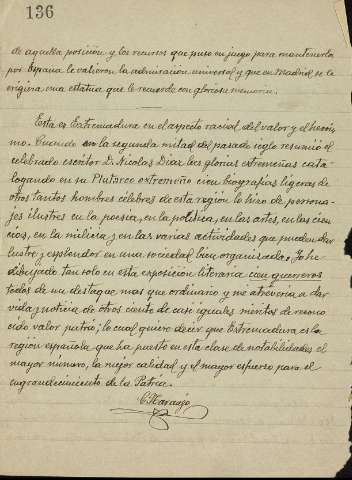 136
de aquella posición y los recursos que puso en juego para mantenerla
por España le valieron la admiración universal y que en Madrid se le
erigiera una estatua que le recuerde con gloriosa memoria.
Esta es Extremadura en el aspecto racial del valor y el herois
mo. Cuando en la segunda mitad del pasado siglo resumió el
celebrado escritor D. Nicolás Díaz las glorias extremeñas cata-
logando en su Plutarco extremeño cien biografías ligeras de
otros tantos hombres célebres de esta región lo hizo de persona-
jes ilustres en la poesía, en la política, en las artes, en las cien
cias, en la milicia y en las varias actividades que pueden dar
lustre y esplendor en una sociedad bien organizada. Yo he
dibujado tan solo en esta exposición literaria cien guerreros
todos de un destaque mas que ordinario y me atrevería a dar
vida y noticia de otros ciento de casi iguales méritos de recono
cido valor patrio; lo cual quiere decir que Extremadura es la
región española que ha puesto en esta clase de notabilidades el
mayor número, la mejor calidad y el mayor esfuerzo para el
engrandecimiento de la Patria.